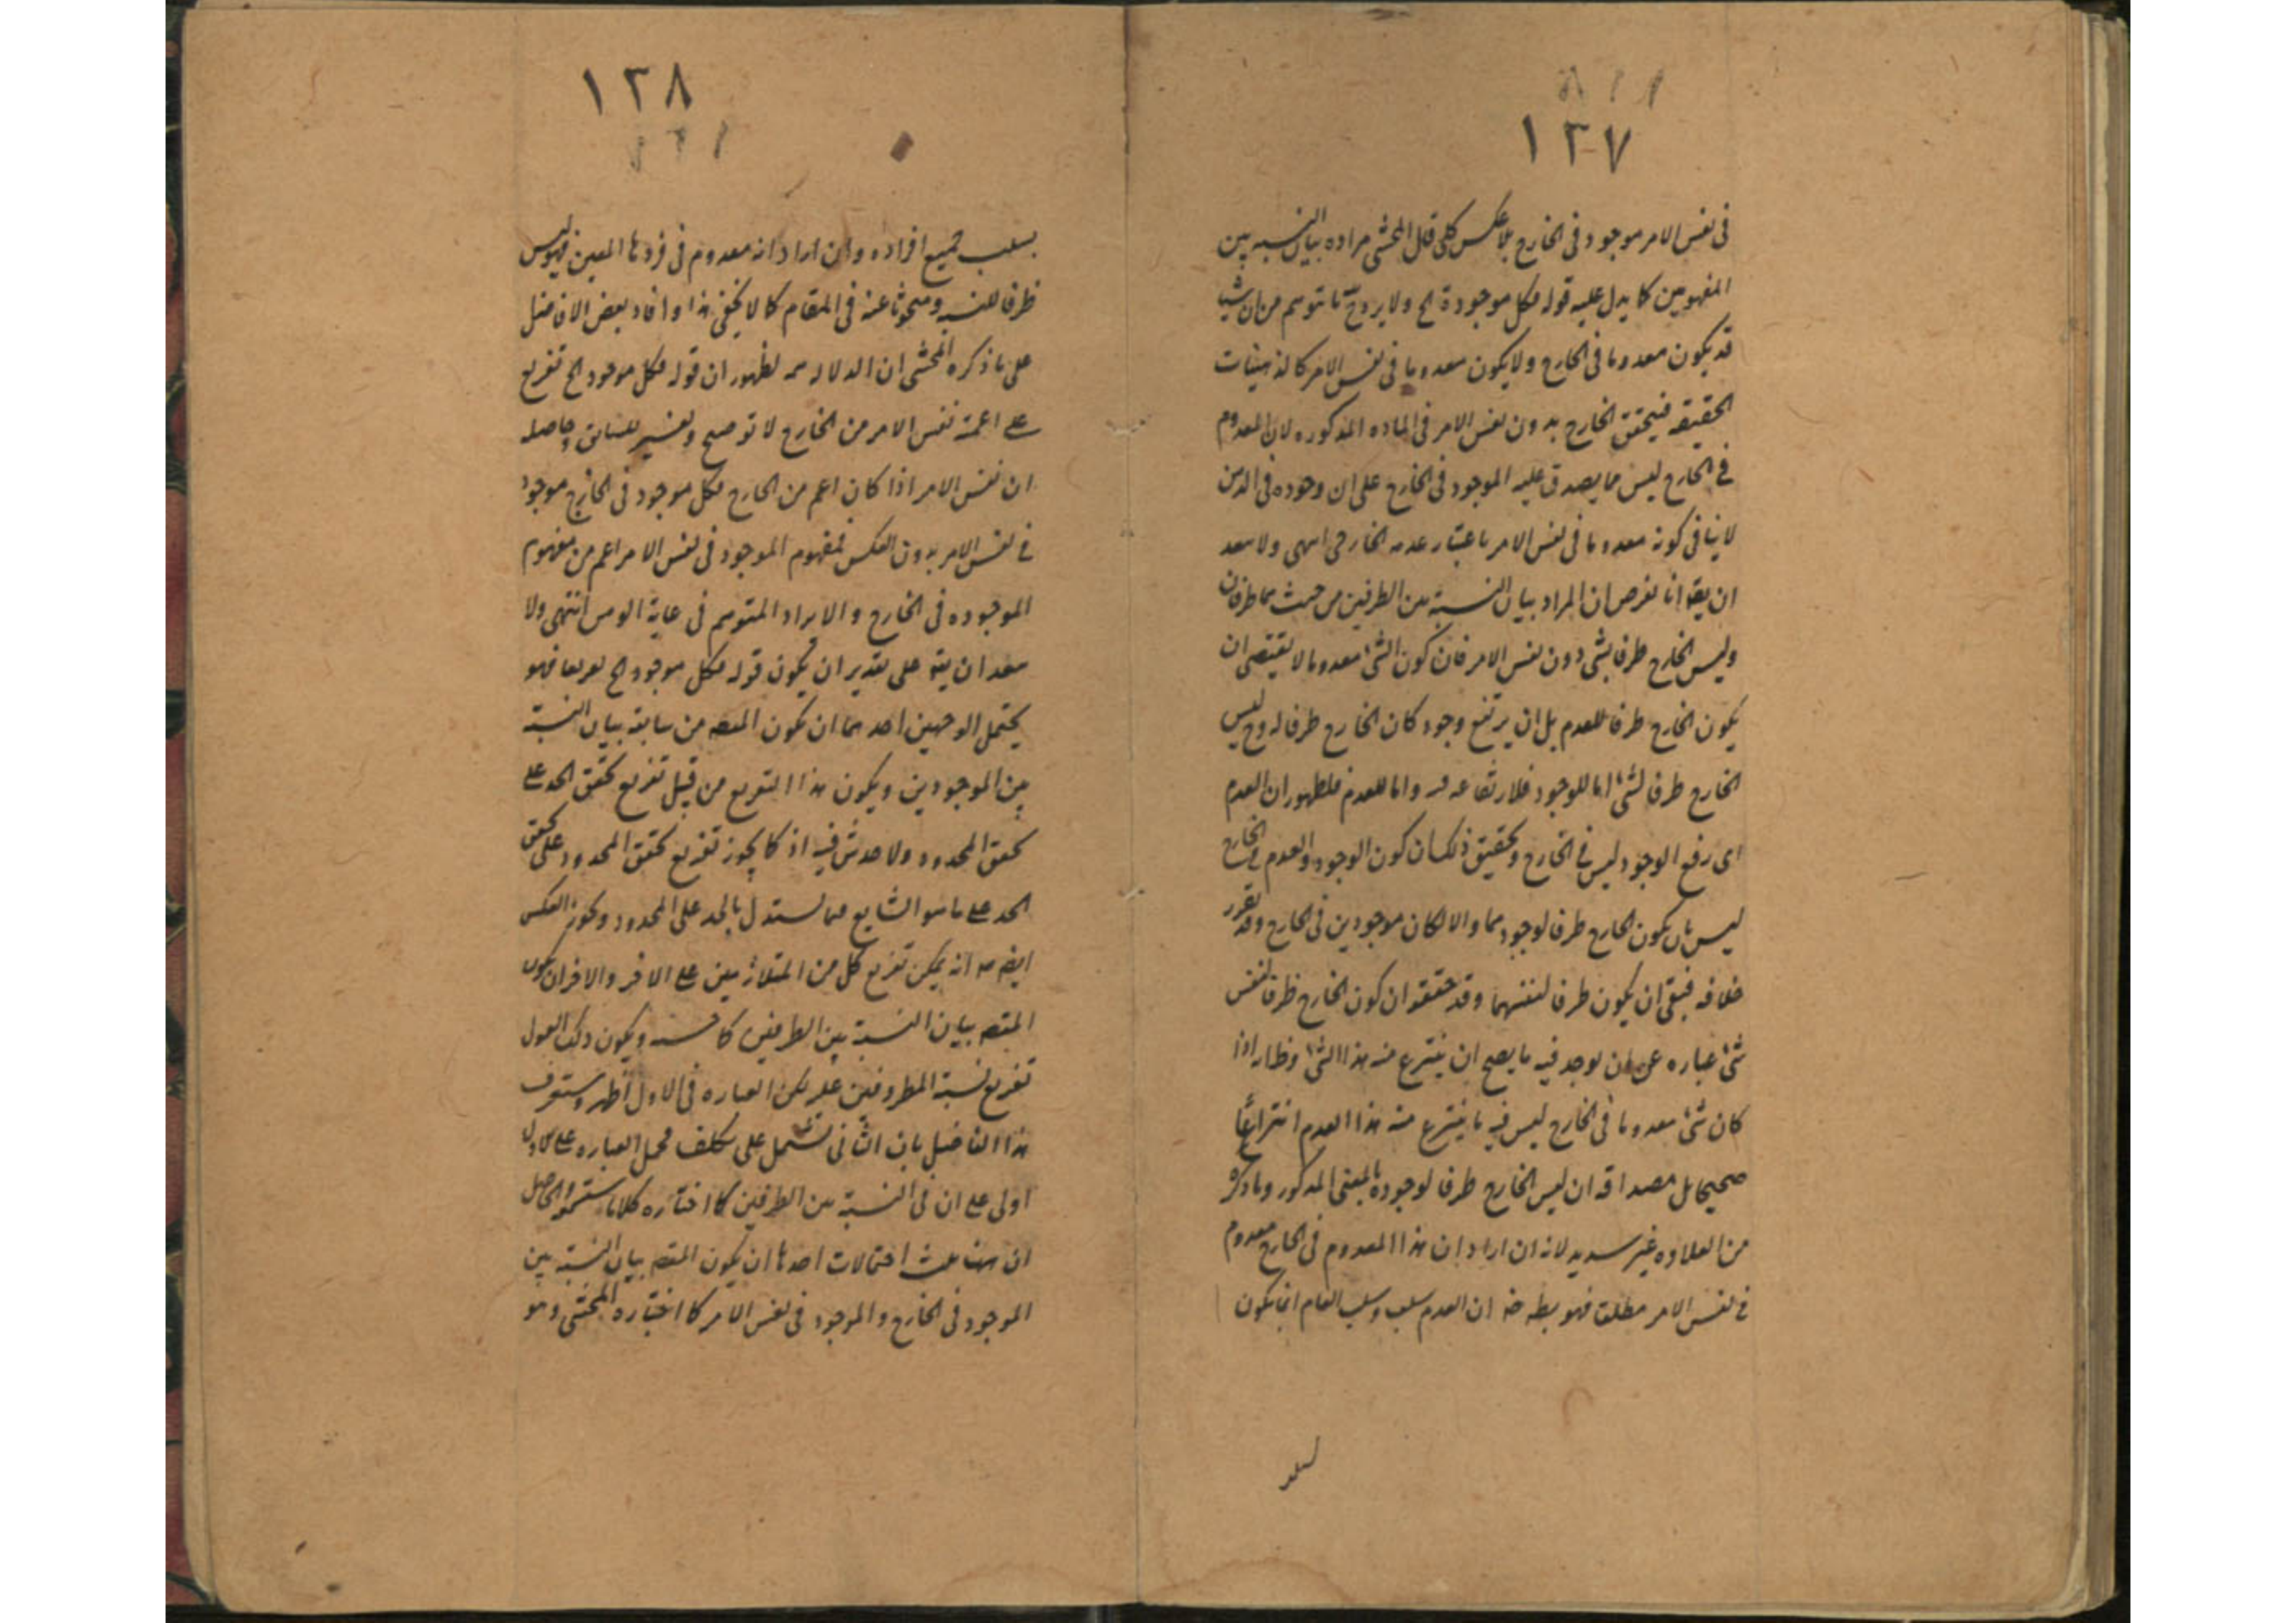 ١٢٧
فى نفس الامر موجود فى الخارج بلا عكس كلى قال المحشى مراده بيان النسبه بين
المفهومين كما يدل عليه قوله فكل موجودة الخ ولا يرد ح ما توهم من ان شيئا
قد يكون معدوما فى الخارج ولا يكون معدوما فى نفس الامر كالذهنيات
الحقيقه فيتحقق الخارج بدون نفس الامر فى الماده المذكوره لان المعدوم
فى الخارج ليس مما يصدق عليه الموجود فى الخارج على ان وجوده فى الذهن
لا ينافى كونه معدوما فى نفس الامر باعتبار عدمه الخارجى انتهى ولا يبعد
ان يقا انا نفرض ان المراد بيان النسبة بين الطرفين من حيث هما طرفان
وليس الخارج ظرفا لشى دون نفس الامر فان كون الشئ معدوما لا يقتضى ان
يكون الخارج ظرفا للعدم بل ان يرتفع وجود كان الخارج ظرفا له وح ليس
الخارج ظرفا لشئ اما للوجود فلارتفاعه فيه واما للعدم فلظهور ان العدم
اى رفع الوجود ليس فى الخارج وتحقيق ذلك ان كون الوجود والعدم فى الخارج
ليس بان يكون الخارج ظرفا لوجودهما والا لكان موجودين فى الخارج وقد تقرر
خلافه فبقى ان يكون ظرفا لنفسهما وقد حققوا ان كون الخارج ظرفا لنفس
شئ عباره عن ان يوجد فيه ما يصح ان ينتزع منه هذا الشئ وظ انه اذا
كان شئ معدوما فى الخارج ليس فيه ما ينتزع منه هذا العدم انتزاعا
صحيحا بل مصداقه ان ليس الخارج ظرفا لوجوده بالمعنى المذكور وما ذكره
من العلاوه غير سديد لانه ان اراد ان هذا المعدوم فى الخارج معدوم
فى نفس الامر مطلقا فهو بط ضه ان العدم سلب وسلب العام انما يكون
١٢٨
بسلب جميع افراده وان اراد انه معدوم فى فردها المعين فهو ليس
ظرفا للنسبه ومبحوثا عنه فى المقام كما لا يخفى هذا وافاد بعض الافاضل
على ما ذكره المحشى ان الدلاله مم لظهور ان قوله فكل موجود الخ تفريع
على اعمية نفس الامر من الخارج لا توضيح وتفسير للسابق وحاصله
ان نفس الامر اذا كان اعم من الخارج فكل موجود فى الخارج موجود
فى نفس الامر بدون العكس فمفهوم الموجود فى نفس الامر اعم من مفهوم
الموجوده فى الخارج والايراد المتوهم فى غاية الوهن انتهى ولا
يبعد ان يقا على تقدير ان يكون قوله فكل موجود الخ تفريعا فهو
يحتمل الوجهين احدهما ان يكون المقصه من سابقه بيان النسبة
بين الموجودين ويكون هذا التفريع من قبيل تفريع تحقق الحد على
تحقق المحدود ولا خدش فيه اذ كما يجوز تفريع تحقق المحدود على تحقق
الحد على ما هو الشايع فيما يستدل بالحد على المحدود ويجوز العكس
ايضا مع انه يمكن تفريع كل من المتلازمين على الاخر والاخر ان يكون
المقصه بيان النسبة بين الطرفين كما هو ويكون ذلك القول
تفريع نسبة المظروفين عليه لكن العباره فى الاول اظهر وستعرف
هذا الفاضل بان الثانى يشتمل على تكلف فحمل العباره على الاول
اولى على ان فى النسبة بين الطرفين كما اختاره كلاما ستسمعه والحاصل
ان ههنا ثلث احتمالات احدها ان يكون المقصه بيان النسبة بين
الموجود فى الخارج والموجود فى نفس الامر كما اختاره المحشى وهو